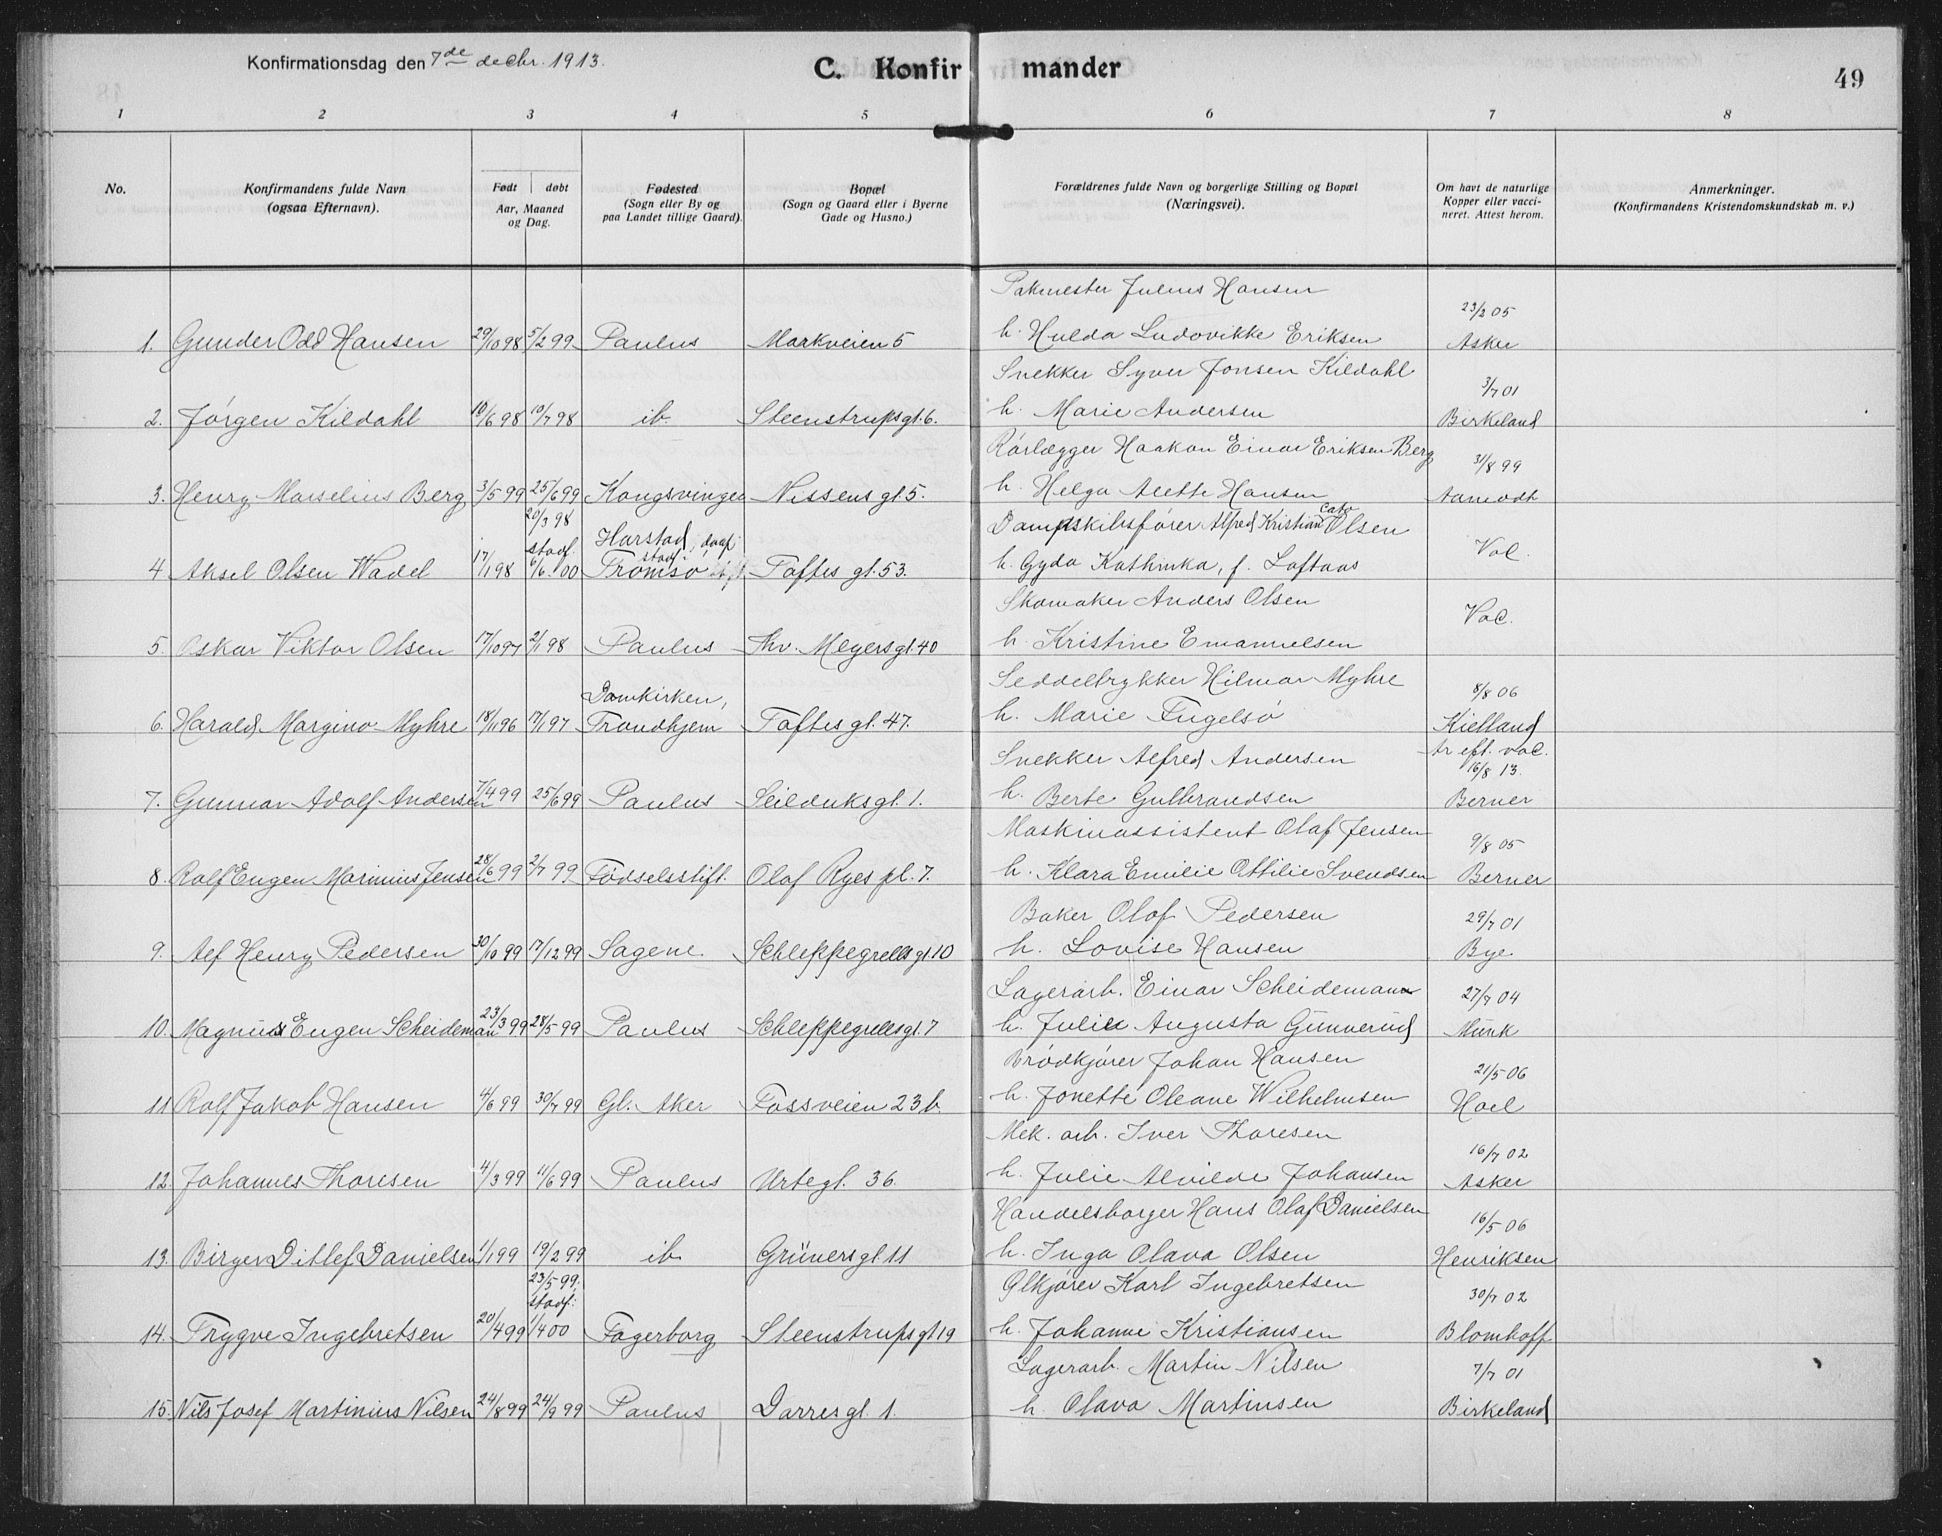 Konfirmationsdag den 7de decbr. 1913.
C. Konfirmander
49
1 2 3 4 5 6 7 8
No.
Konfirmandens fulde Navn
(ogsaa Efternavn).
Født døbt
Aar, Maaned
og Dag.
Fødested
(Sogn eller By og
paa Landet tillige Gaard).
Bopæl
(Sogn og Gaard eller i Byerne
Gade og Husno.)
Forældrenes fulde Navn og borgerlige Stilling og Bopæl
(Næringsvei).
Om havt de naturlige
Kopper eller vacci-
neret. Attest herom.
Anmerkninger.
(Konfirmandens Kristendomskundskab m. v.)
Pakmester Julius Hansen 23/2 05
1. Gunder Odd Hansen 29/10 98 5/2 99 Paulus Markveien 5 h. Hulda Ludovikke Eriksen Asker
Snekker Syver Jonsen Kildahl 3/7 01
2. Jørgen Kildahl 10/6 98 10/7 98 ib. Steenstrupsgt. 6. h. Marie Andersen Birkeland
Rørlægger Haakon Einar Eriksen Berg 31/8 99
3. Henry Marselius Berg 3/5 99 25/6 99 Kongsvinger Nissens gt. 5. h. Helga Alette Hansen Aamodt
20/3 98 Harstad, Dampskibsfører Alfred Kristian Cato Olsen
stadf. stadf. Vac.
4. Aksel Olsen Wadel 17/1 98 6/6. 00 Tromsø Toftes gt. 53. h. Gyda Kathinka, f. Loftaas
Skomaker Anders Olsen Vac.
5. Oskar Viktor Olsen 17/10 97 2/1 98 Paulus Thv. Meyersgt. 40 h. Kristine Emanuelsen
Domkirken, Seddeltrykker Hilmar Myhre 8/8 06
6. Harald Margino Myhre 18/11 96 17/1 97 Trondhjem Toftes gt. 47. h. Marie Fugelsø Kielland
Snekker Alfred Andersen Ar eft. vac.
16/8 13.
7. Gunnar Adolf Andersen 7/4 99 25/6 99 Paulus Seilduksgt. 1. h. Berte Gulbrandsen Berner
Maskinassistent Olaf Jensen 9/8 05
8. Rolf Eugen Marinius Jensen 28/6 99 2/7 99 Fødselsstift. Olaf Ryes pl. 7. h. Klara Emilie Ottilie Svendsen Berner
Baker Olaf Pedersen 29/7 01
9. Alf Henry Pedersen 30/10 99 17/12 99 Sagene Schleppegrells gt. 10 h. Lovise Hansen Bye
Lagerarb. Einar Scheidemann 27/7 04
10. Magnus Eugen Scheideman 23/3 99 28/5 99 Paulus Schleppegrellsgt. 7 h. Julie Augusta Gunnerud Munk
Brødkjører Johan Hansen 21/5 06
11 Rolf Jakob Hansen 4/6 99 30/7 99 Gl. Aker Fossveien 23 b. h. Jonette Oleane Wilhelmsen Hoel
Mek. arb. Iver Thoresen 16/7 02
12. Johannes Thoresen 4/3 99 11/6 99 Paulus Urtegt. 36. h. Julie Alvilde Johansen Asker
Handelsborger Hans Olaf Danielsen 16/5 06
13. Birger Ditlef Danielsen 1/1 99 19/2 99 ib Grünersgt. 11 h. Inga Olava Olsen Henriksen
23/5 99. Ølkjører Karl Ingebretsen 30/7 02
stadf:
14. Trygve Ingebretsen 20/4 99 1/4 00 Fagerborg Steenstrupsgt 19 h. Johanne Kristiansen Blomhoff
Lagerarb. Martin Nilsen 7/7 01
15. Nils Josef Martinius Nilsen 24/8 99 24/9 99 Paulus Darresgt. 1. h. Olava Martinsen Birkeland